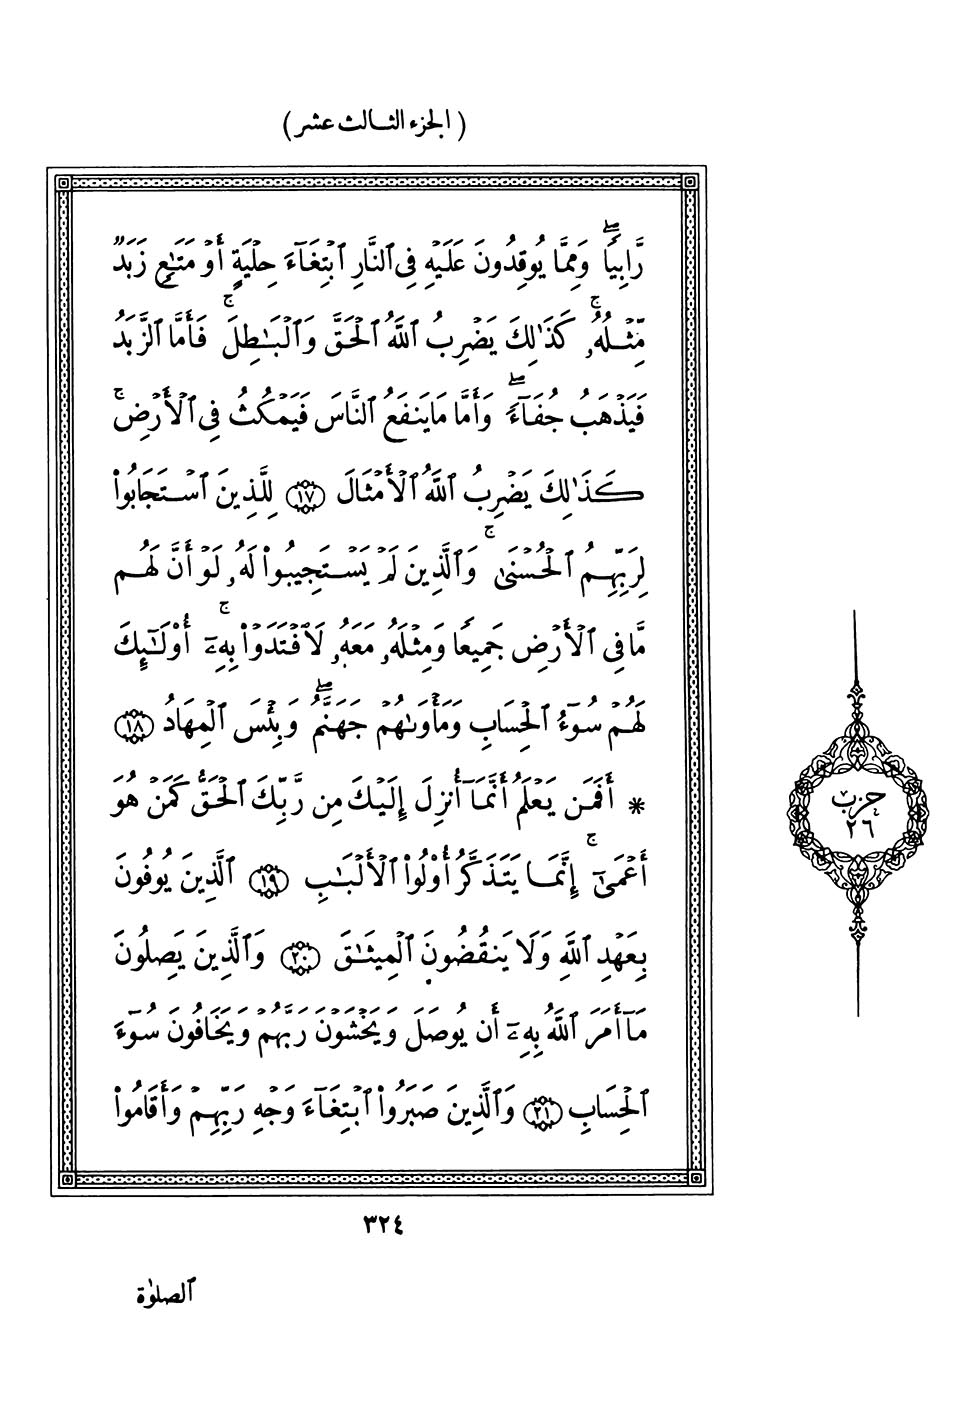 ( الجزء الثالث عشر )
رَّابِيًا ۖ وَمِمَّا يُوقِدُونَ عَلَيْهِ فِي ٱلنَّارِ ٱبْتِغَآءَ حِلْيَةٍ أَوْ مَتَٰعٍ زَبَدٌ
مِّثْلُهُۥ ۚ كَذَٰلِكَ يَضْرِبُ ٱللَّهُ ٱلْحَقَّ وَٱلْبَٰطِلَ ۚ فَأَمَّا ٱلزَّبَدُ
فَيَذْهَبُ جُفَآءً ۖ وَأَمَّا مَا يَنفَعُ ٱلنَّاسَ فَيَمْكُثُ فِي ٱلْأَرْضِ ۚ
كَذَٰلِكَ يَضْرِبُ ٱللَّهُ ٱلْأَمْثَالَ ١٧ لِلَّذِينَ ٱسْتَجَابُوا۟
لِرَبِّهِمُ ٱلْحُسْنَىٰ ۚ وَٱلَّذِينَ لَمْ يَسْتَجِيبُوا۟ لَهُۥ لَوْ أَنَّ لَهُم
مَّا فِي ٱلْأَرْضِ جَمِيعًا وَمِثْلَهُۥ مَعَهُۥ لَٱفْتَدَوْا۟ بِهِۦٓ ۚ أُو۟لَٰٓئِكَ
لَهُمْ سُوٓءُ ٱلْحِسَابِ وَمَأْوَىٰهُمْ جَهَنَّمُ ۖ وَبِئْسَ ٱلْمِهَادُ ١٨
* أَفَمَن يَعْلَمُ أَنَّمَآ أُنزِلَ إِلَيْكَ مِن رَّبِّكَ ٱلْحَقُّ كَمَنْ هُوَ
أَعْمَىٰٓ ۚ إِنَّمَا يَتَذَكَّرُ أُو۟لُوا۟ ٱلْأَلْبَٰبِ ١٩ ٱلَّذِينَ يُوفُونَ
بِعَهْدِ ٱللَّهِ وَلَا يَنقُضُونَ ٱلْمِيثَٰقَ ٢٠ وَٱلَّذِينَ يَصِلُونَ
مَآ أَمَرَ ٱللَّهُ بِهِۦٓ أَن يُوصَلَ وَيَخْشَوْنَ رَبَّهُمْ وَيَخَافُونَ سُوٓءَ
ٱلْحِسَابِ ٢١ وَٱلَّذِينَ صَبَرُوا۟ ٱبْتِغَآءَ وَجْهِ رَبِّهِمْ وَأَقَامُوا۟
حزب
٢٦
٣٢٤
ٱلصلوٰة